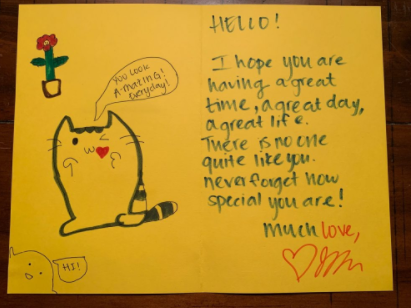 YOU LOOK
A-MAZING!
everyday!
HI!
HELLO!
I hope you are
having a great
time, a great day,
a great life.
There is no one
quite like you.
never forget how
special you are!
Much love,